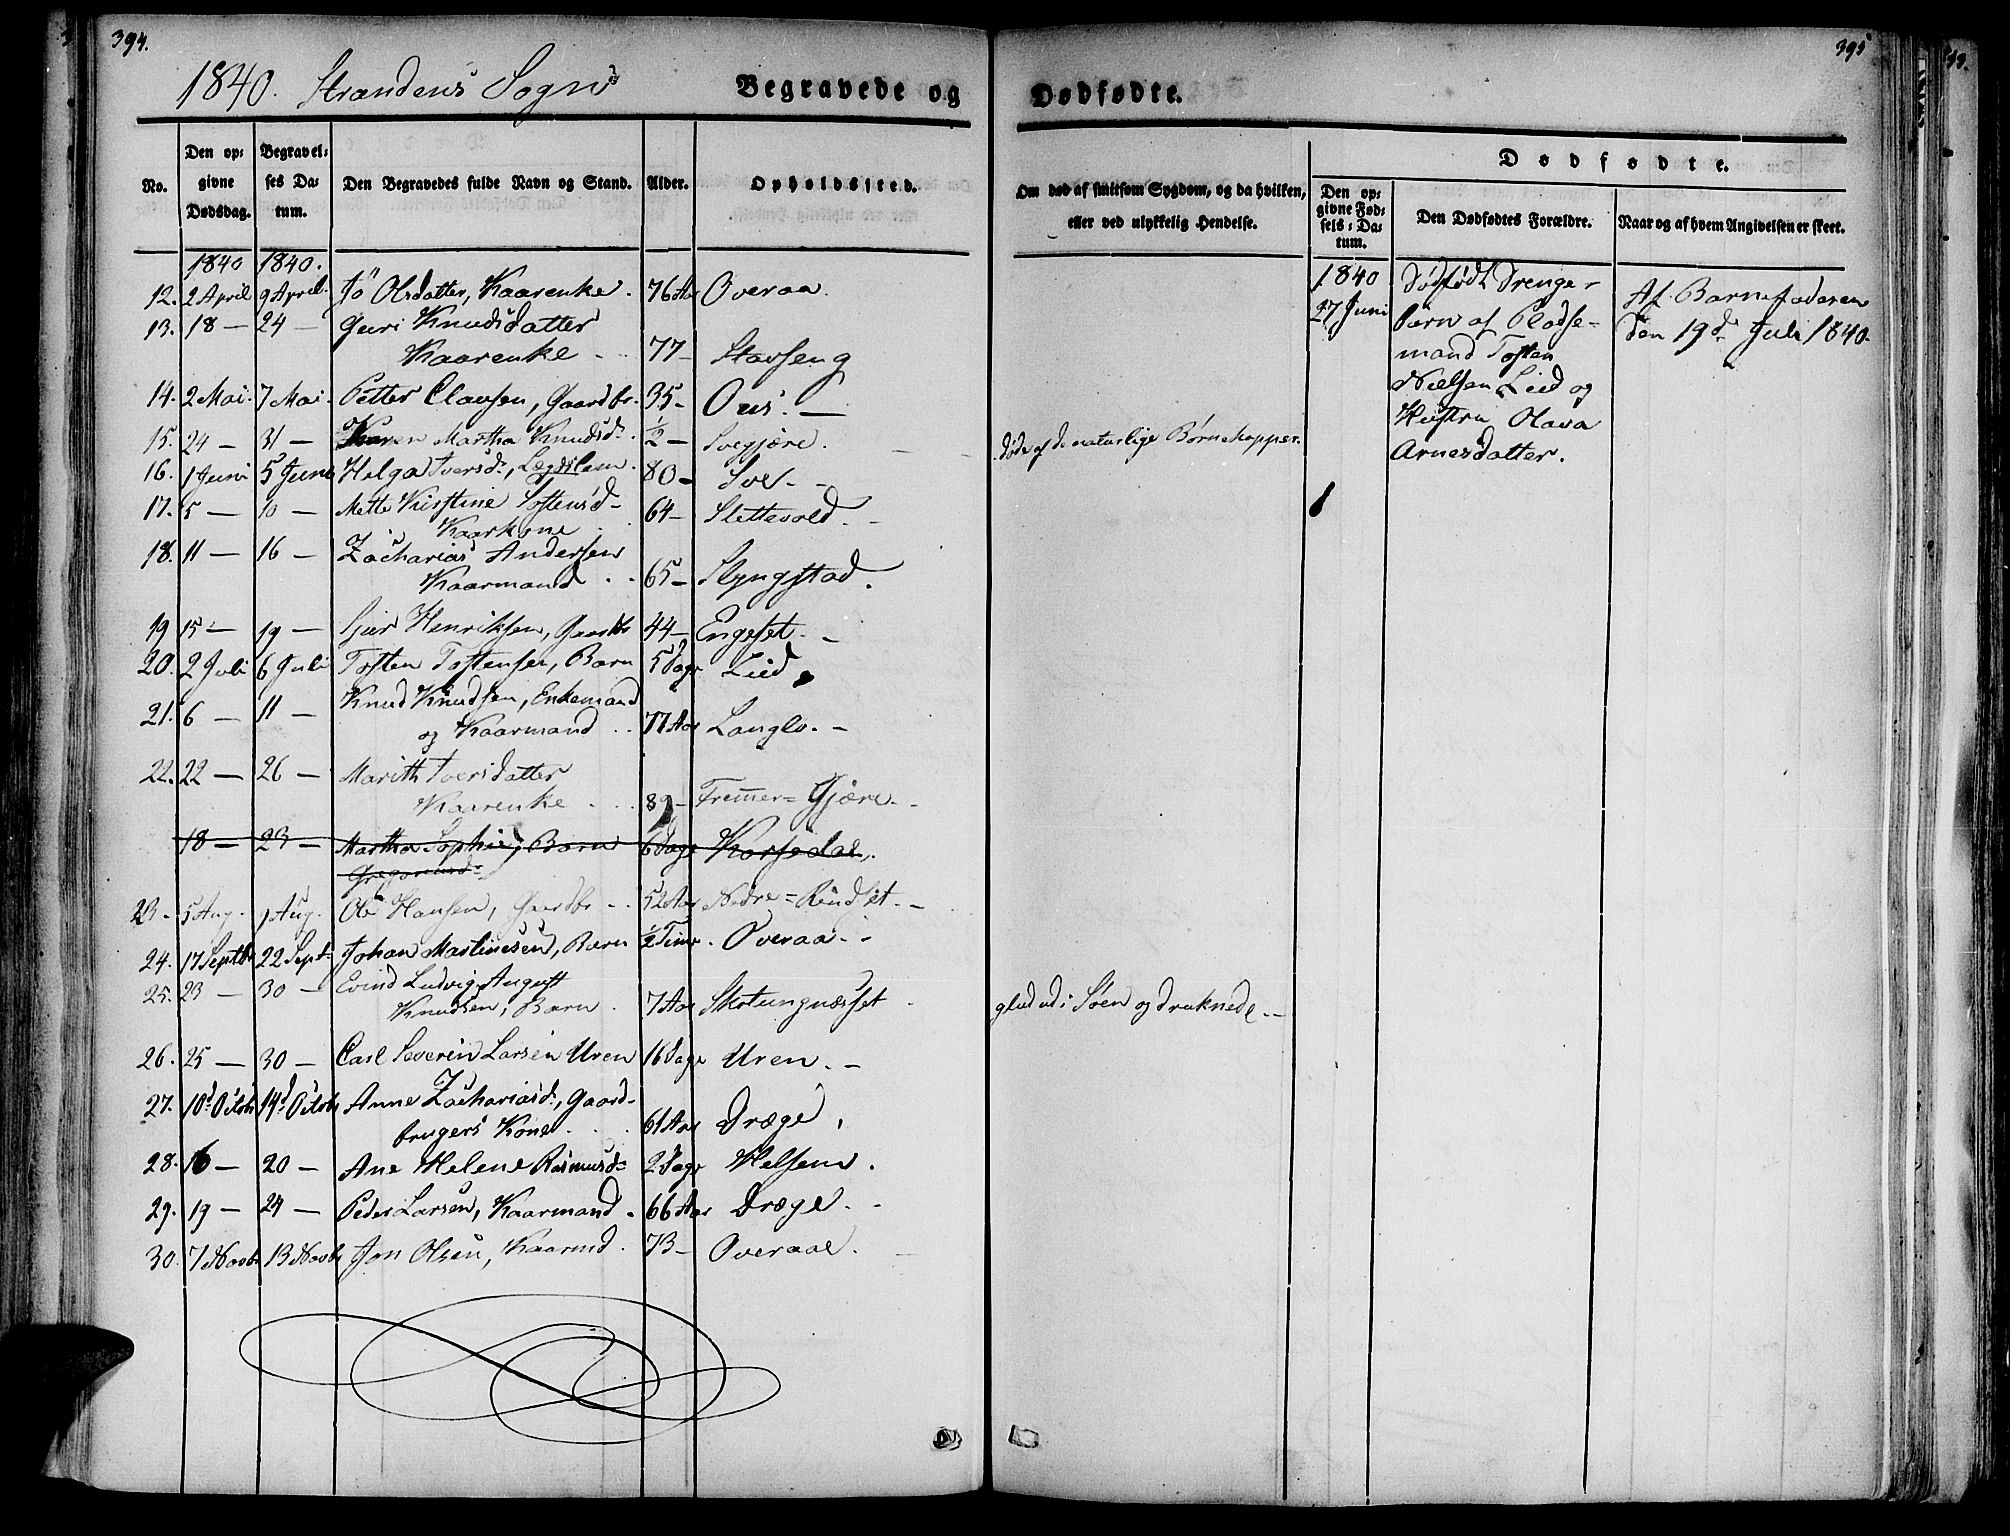 394.
1840. Strandens Sogns Begravede og
No. Den opgivne Dødsdag. Begravelses Datum. Den Begravedes fulde Navn og Stand. Alder. Opholdssted.
1840 1840.
12. 2 April 9 April Olsdatter, Kaarenke. 76 Aar Overaa.
13. 18 — 24 — Guri Knudsdatter
Kaarenke 77 —
14. 2 Mai. 7 Mai. Petter Clausen, Gaardbr. 35 — Ous. —
15. 24 — 31 — Karen Martha Knudsd. ½ — Svegjære.
16. 1 Juni 5 Juni Helga Iversd., Lægdslem. 80 — Sve. —
17. 5 — 10 — Mette Kirstine Tostensd —
Kaarkone 64 — Slettevold. —
18. 11 — 16 — Zacharias Andersen
Kaarmand 65 — Slyngstad.
19 15 — 19 — Henriksen, Gaardbr 44 — Engeset. —
20. 2 Juli 6 Juli Tosten Tostensen, Barn 5 Dage Lied
21. 6 — 11 — Knud Knudsen, Enkemand
og Kaarmand 77 Aar Langlo. —
22. 22 — 26 — Marith Iversdatter
Kaarenke 89 — Fremmer = Gjære. —
18 — 23 — Martha Sophie, Barn 6 Dage Korsedal.
Gregoriusd
23 — 5 Aug. Aug. Ole Hansen, Gaardbr — 52 Aar Nedre = Rindset. —
24. 17 Septbr 22 Sept. Johan Martinesen, Barn ½ Time. Overaa. —
25. 23 — 30 — Evind Ludvig August
Knudsen, Barn. 7 Aar Skotungnæsset
26. 25 — 30 — Carl Severin Larsen Uren 16 Dage Uren. —
27. 10d Octobr 14d Octobr Anne Zachariasd., Gaard-
brugers Kone 61 Aar Dræge.
28. 16 — 20 — Ane Helene Rasmusd 2 Dage Helsem.
29. 19 — 24 — Peder Larsen, Kaarmand. 66 Aar Dræge. —
30. 7 Novbr 13 Novbr Jon Olsen, Kaarmd. 73 — Overaae.
395
Dødfødte.
Om død af smitsom Sygdom, og da hvilken,
eller ved ulykkelig Hendelse.
Dødfødte.
Den opgivne Fødsels-Datum. Den Dødfødtes Forældre. Naar og af hvem Angivelsen er skeet.
døde af de naturlige Børnekopper.
gled ud i Søen og druknede. —
1840
27 Juni
Dødfødt Drenge-
barn af Pladse-
mand Tosten
Nielsen Lied og
Hustru Olava
Arnesdatter.
1
Af Barnefaderen
den 19d Juli 1840.